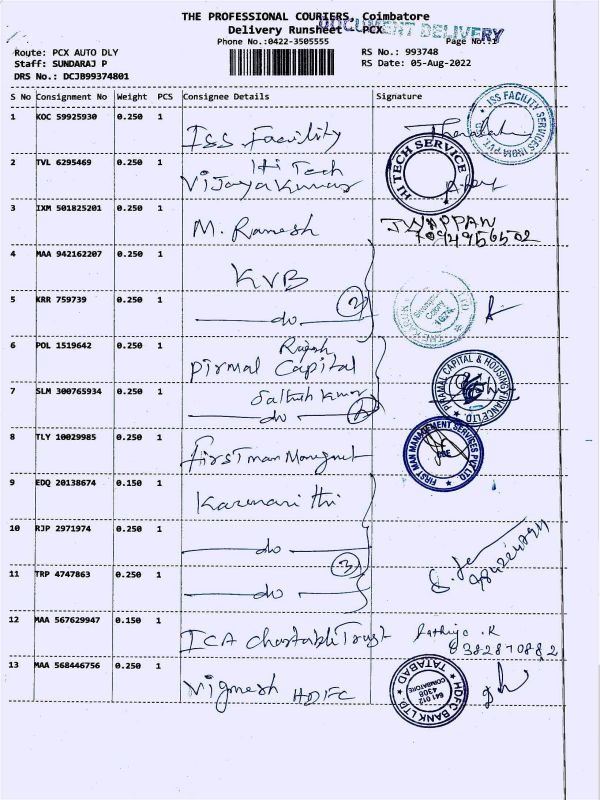 THE PROFESSIONAL COURIERS, Coimbatore
DOCUMENT DELIVERY
Delivery Runsheet - PCX
Phone No.:0422-3505555
Page No.:1
Route: PCX AUTO DLY
RS No.: 993748
Staff: SUNDARAJ P
RS Date: 05-Aug-2022
DRS No.: DCJB99374801
S No Consignment No Weight PCS Consignee Details Signature
1 KOC 59925930 0.250 1 ISS Facility
ISS FACILITY SERVICES INDIA PVT
2 TVL 6295469 0.250 1 Hi Tech
Vijayakumar
HI TECH SERVICE
3 IXM 501825201 0.250 1 M. Ramesh
4 MAA 942162207 0.250 1 KVB
5 KRR 759739 0.250 1 do 2
6 POL 1519642 0.250 1 Rajesh
Pirmal Capital
PIRAMAL CAPITAL & HOUSING FINANCE LTD.
7 SLM 300765934 0.250 1 Sathish Kumar
do
8 TLY 10029985 0.250 1 First man
FIRST MAN MANAGEMENT SERVICES PVT LTD.
9 EDQ 20138674 0.150 1
10 RJP 2971974 0.250 1 do
3
11 TRP 4747863 0.250 1 do
12 MAA 567629947 0.150 1 ICA Trust
13 MAA 568446756 0.250 1 Vignesh HDFC
HDFC BANK LTD. TATABAD
641 012
COIMBATORE